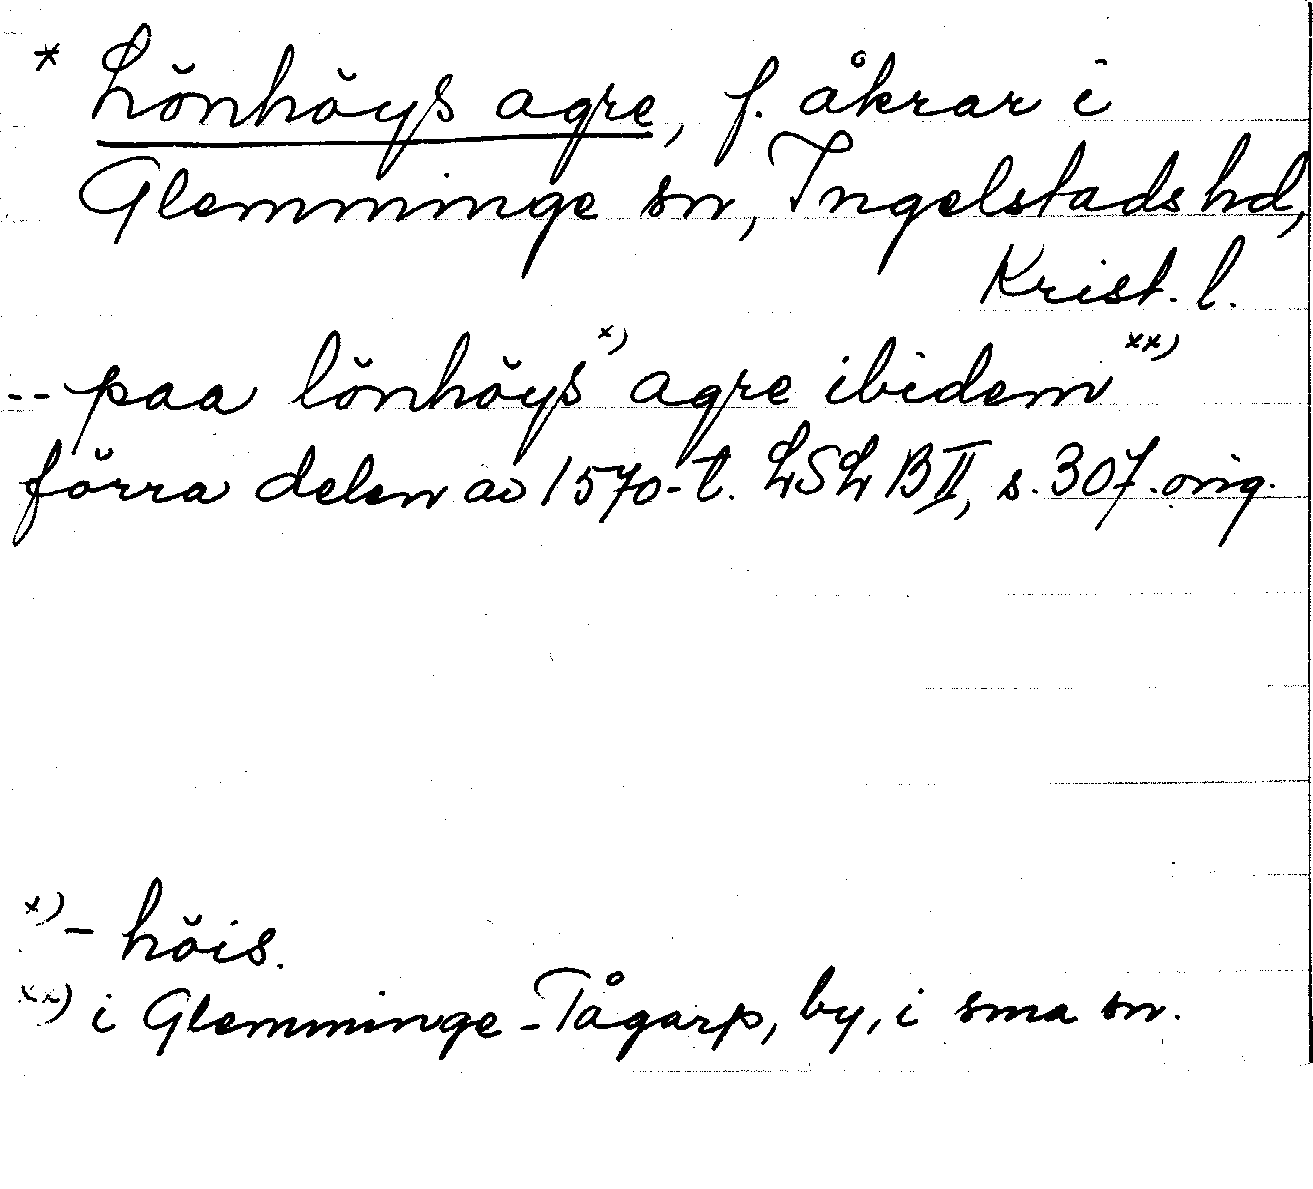 * Lönhöys agre, f. åkrar i
Glemminge sn, Ingelstads hd,
Krist. l.
-- paa lönhöys x) agre ibidem xx)
förra delen av 1570-t. LSL B II, s. 307. orig.
x) - höis.
xx) i Glemminge-Tågarp, by, i sma sn.